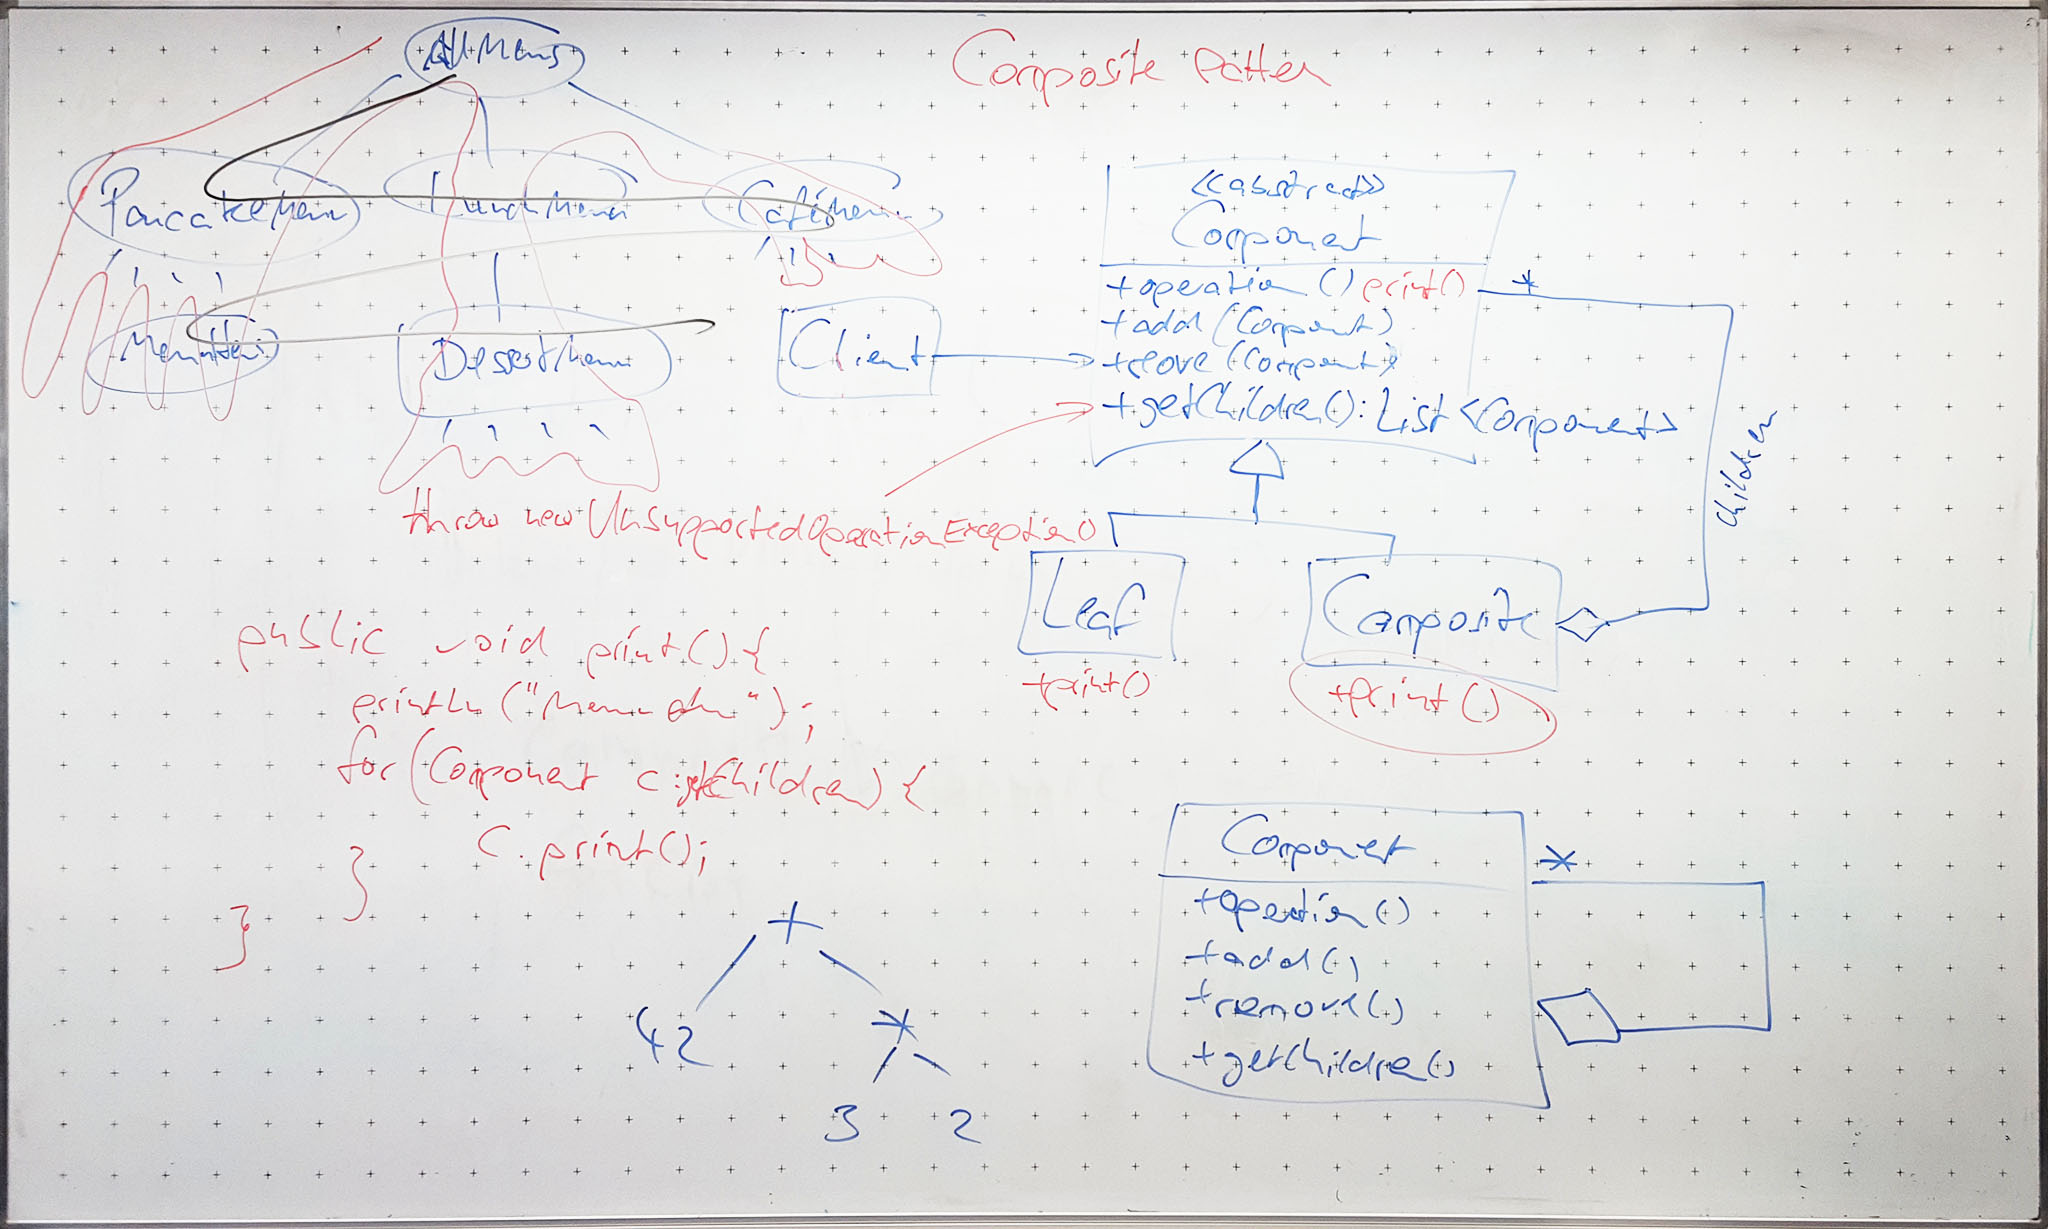 Composite Pattern
AllMenus
PancakeMenu
LunchMenu
CaféMenu
MenuItem
DessertMenu
Client
<<abstract>>
Component
+operation() print()
+add(Component)
+remove(Component)
+getChildren(): List<Component>
*
children
throw new UnsupportedOperationException()
Leaf
+print()
Composite
+print()
public void print(){
println("Menu
");
for(Component c:getChildren){
c.print();
}
}
+
42
*
3
2
Component
+operation()
+add()
+remove()
+getChildren()
*